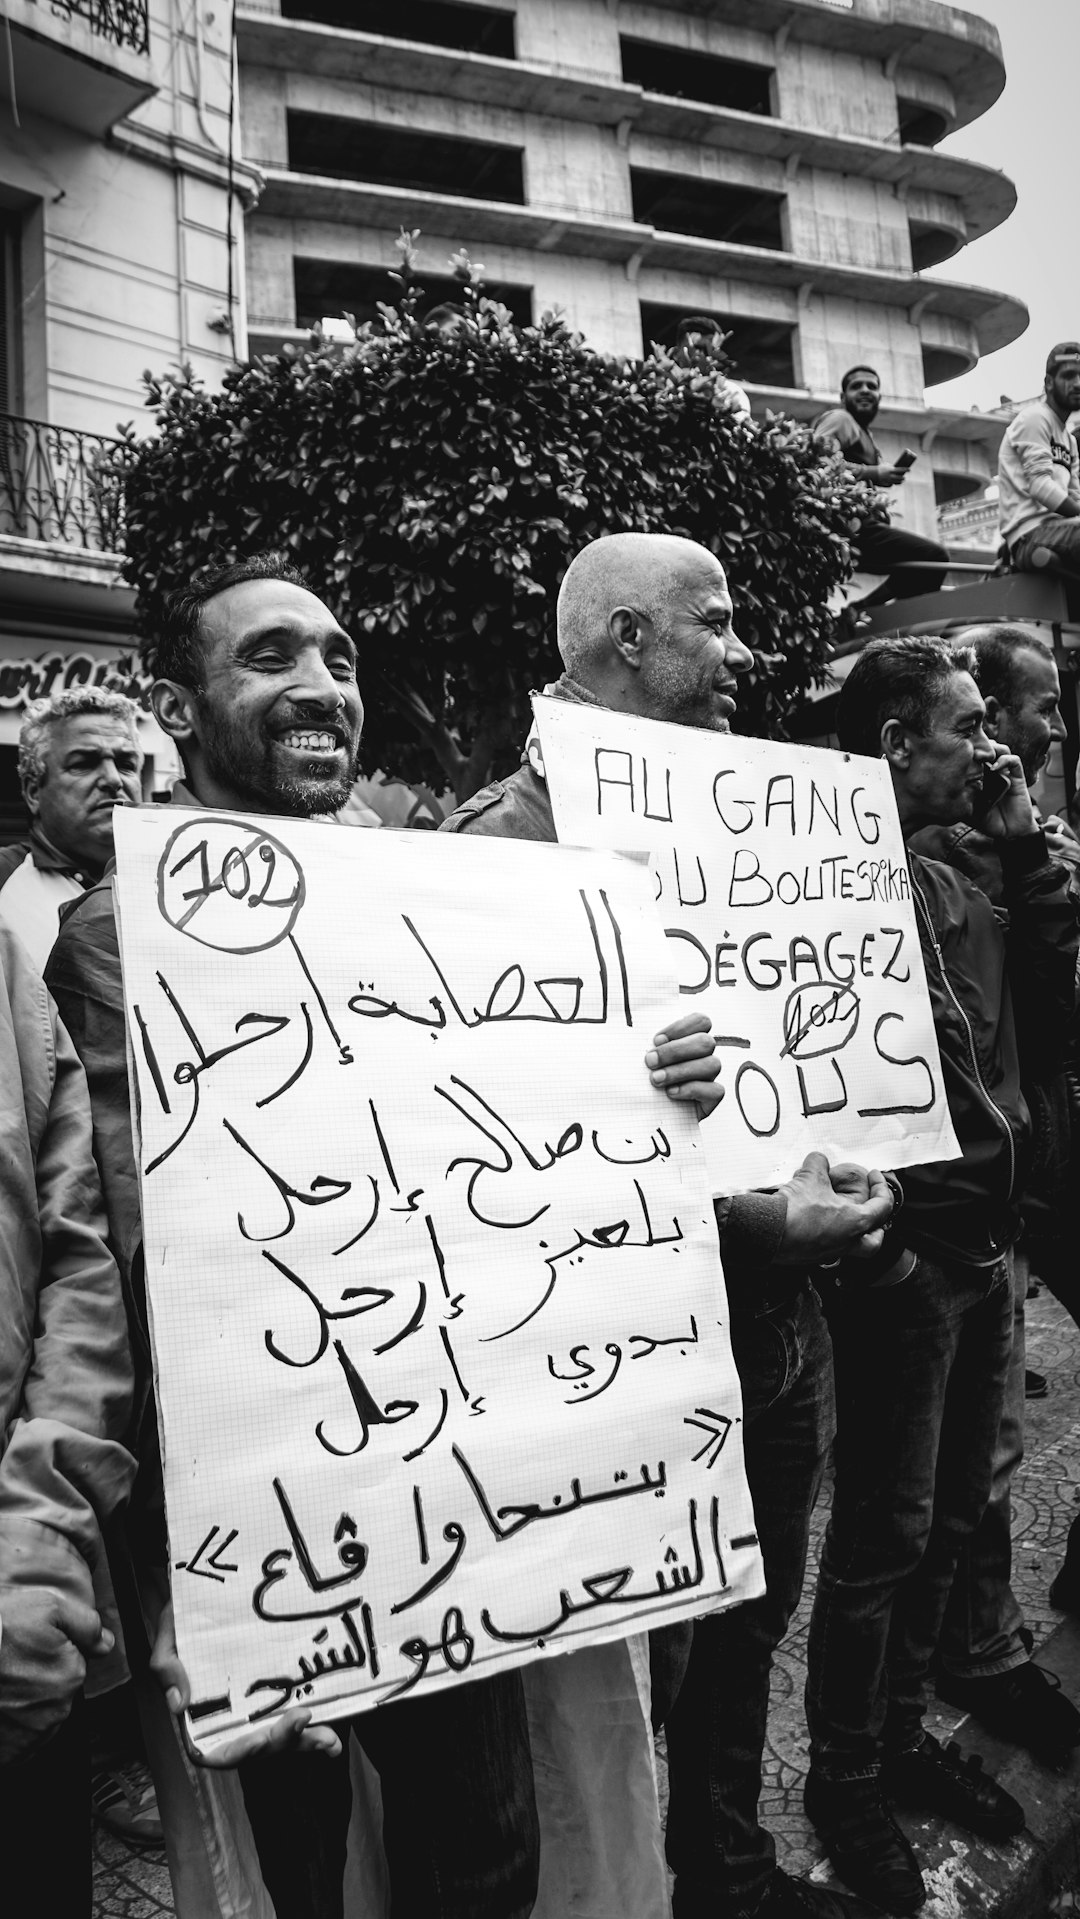 102
العصابة إرحلوا
بن صالح إرحل
بلعيز إرحل
بدوي إرحل
« يتنحاوا ڨاع »
- الشعب هو السَيِد -
AU GANG
DU BOUTESRIKA
DÉGAGEZ
102
TOUS